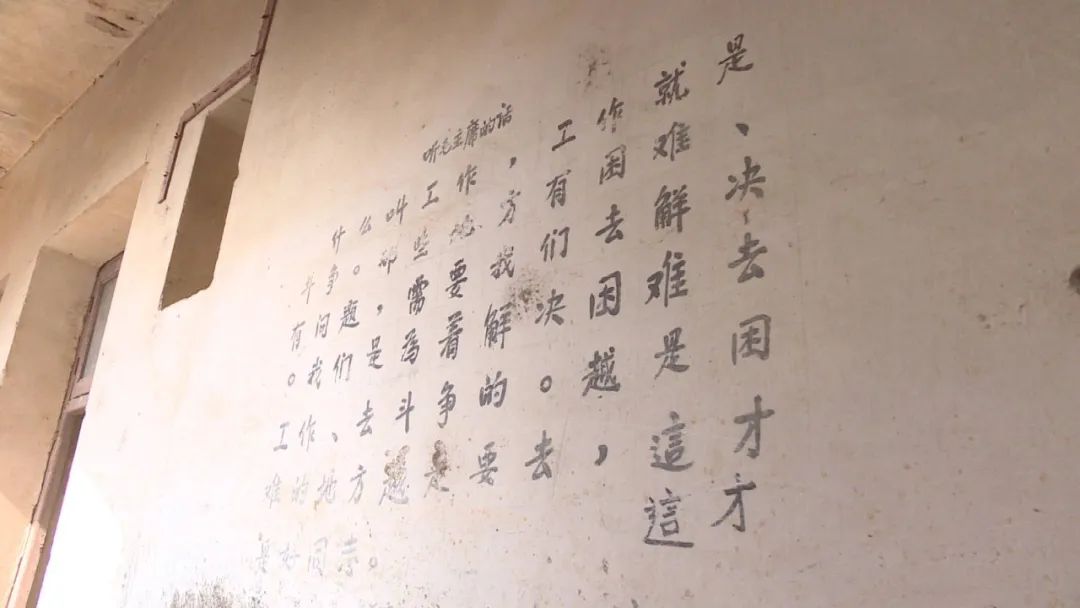 听毛主席的话
什么叫工作，工作就是
斗争。那些地方有困难、
有问题，需要我们去解决
。我们是为着解决困难去
工作、去斗争的。越是困
难的地方越是要去，這才
是好同志。 這才